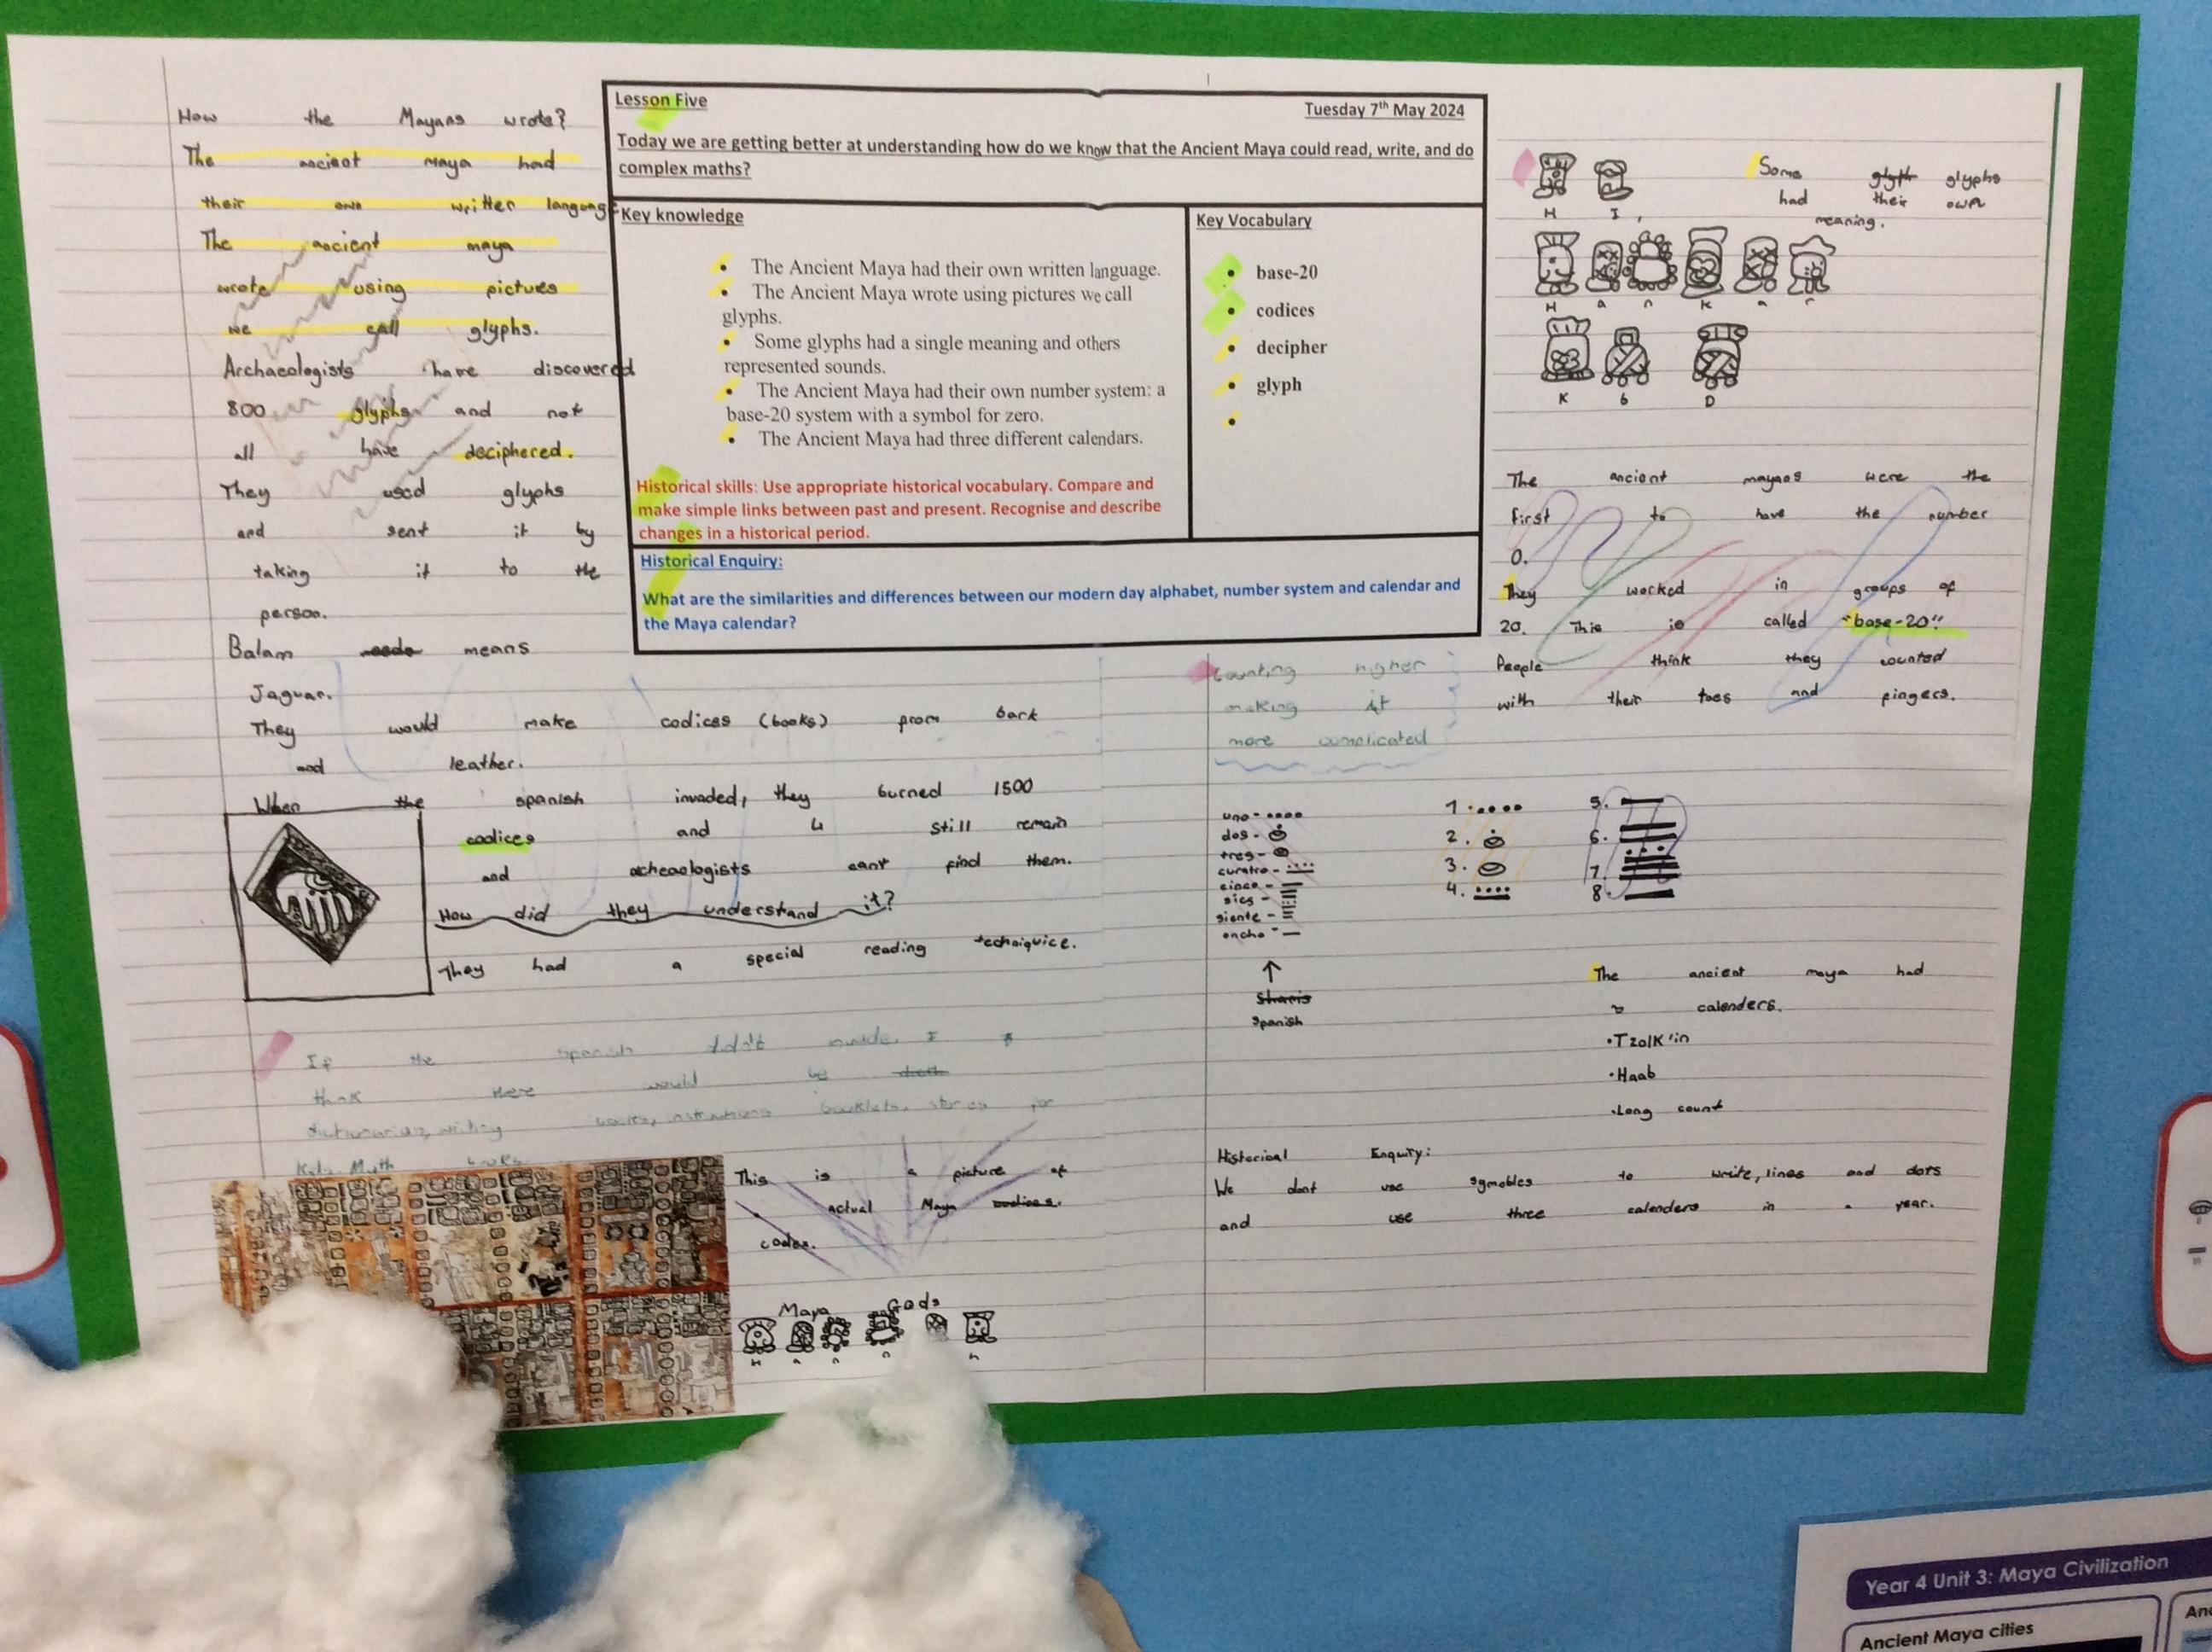 How the Mayans wrote?
The ancient Maya had
their own written language
The ancient maya
wrote using pictues
we call glyphs.
Archaeologists have discovered
800 glyphs and not
all have deciphered.
They used glyphs
and sent it by
taking it to the
person.
Balam means
Jaguar.
They would make codices (books) from bark
and leather.
When the spanish invaded, they burned 1500
codices and 4 still remain
and acheaologists cant find them.
How did they understand it?
They had a special reading
If the spanish didn't invade, I
think there would be
booklets, stories for
This is a picture of
actual Maya codices.
codex.
Maya Gods
H a n n a h
Lesson Five
Tuesday 7th May 2024
Today we are getting better at understanding how do we know that the Ancient Maya could read, write, and do
complex maths?
Key knowledge
• The Ancient Maya had their own written language.
• The Ancient Maya wrote using pictures we call
glyphs.
• Some glyphs had a single meaning and others
represented sounds.
• The Ancient Maya had their own number system: a
base-20 system with a symbol for zero.
• The Ancient Maya had three different calendars.
Historical skills: Use appropriate historical vocabulary. Compare and
make simple links between past and present. Recognise and describe
changes in a historical period.
Key Vocabulary
• base-20
• codices
• decipher
• glyph
•
Historical Enquiry:
What are the similarities and differences between our modern day alphabet, number system and calendar and
the Maya calendar?
H I,
Some glyph glyphs
had their own
meaning.
H a n K a r
K b D
The ancient mayans were the
first to have the number
0.
They worked in groups of
20. This is called "base-20"
People think they counted
with their toes and fingers.
Counting higher
making it
more complicated
uno-
dos-
tres-
curatro-
cinco-
sies-
siente-
oncho-
Spanish
1.
2.
3.
4.
5.
6.
7.
8.
The ancient maya had
3 calenders.
•Tzolk'in
•Haab
•Long count
Historical Enquiry:
We dont use symobles to write, lines and dots
and use three calenders in a year.
Year 4 Unit 3: Maya Civilization
Ancient Maya cities